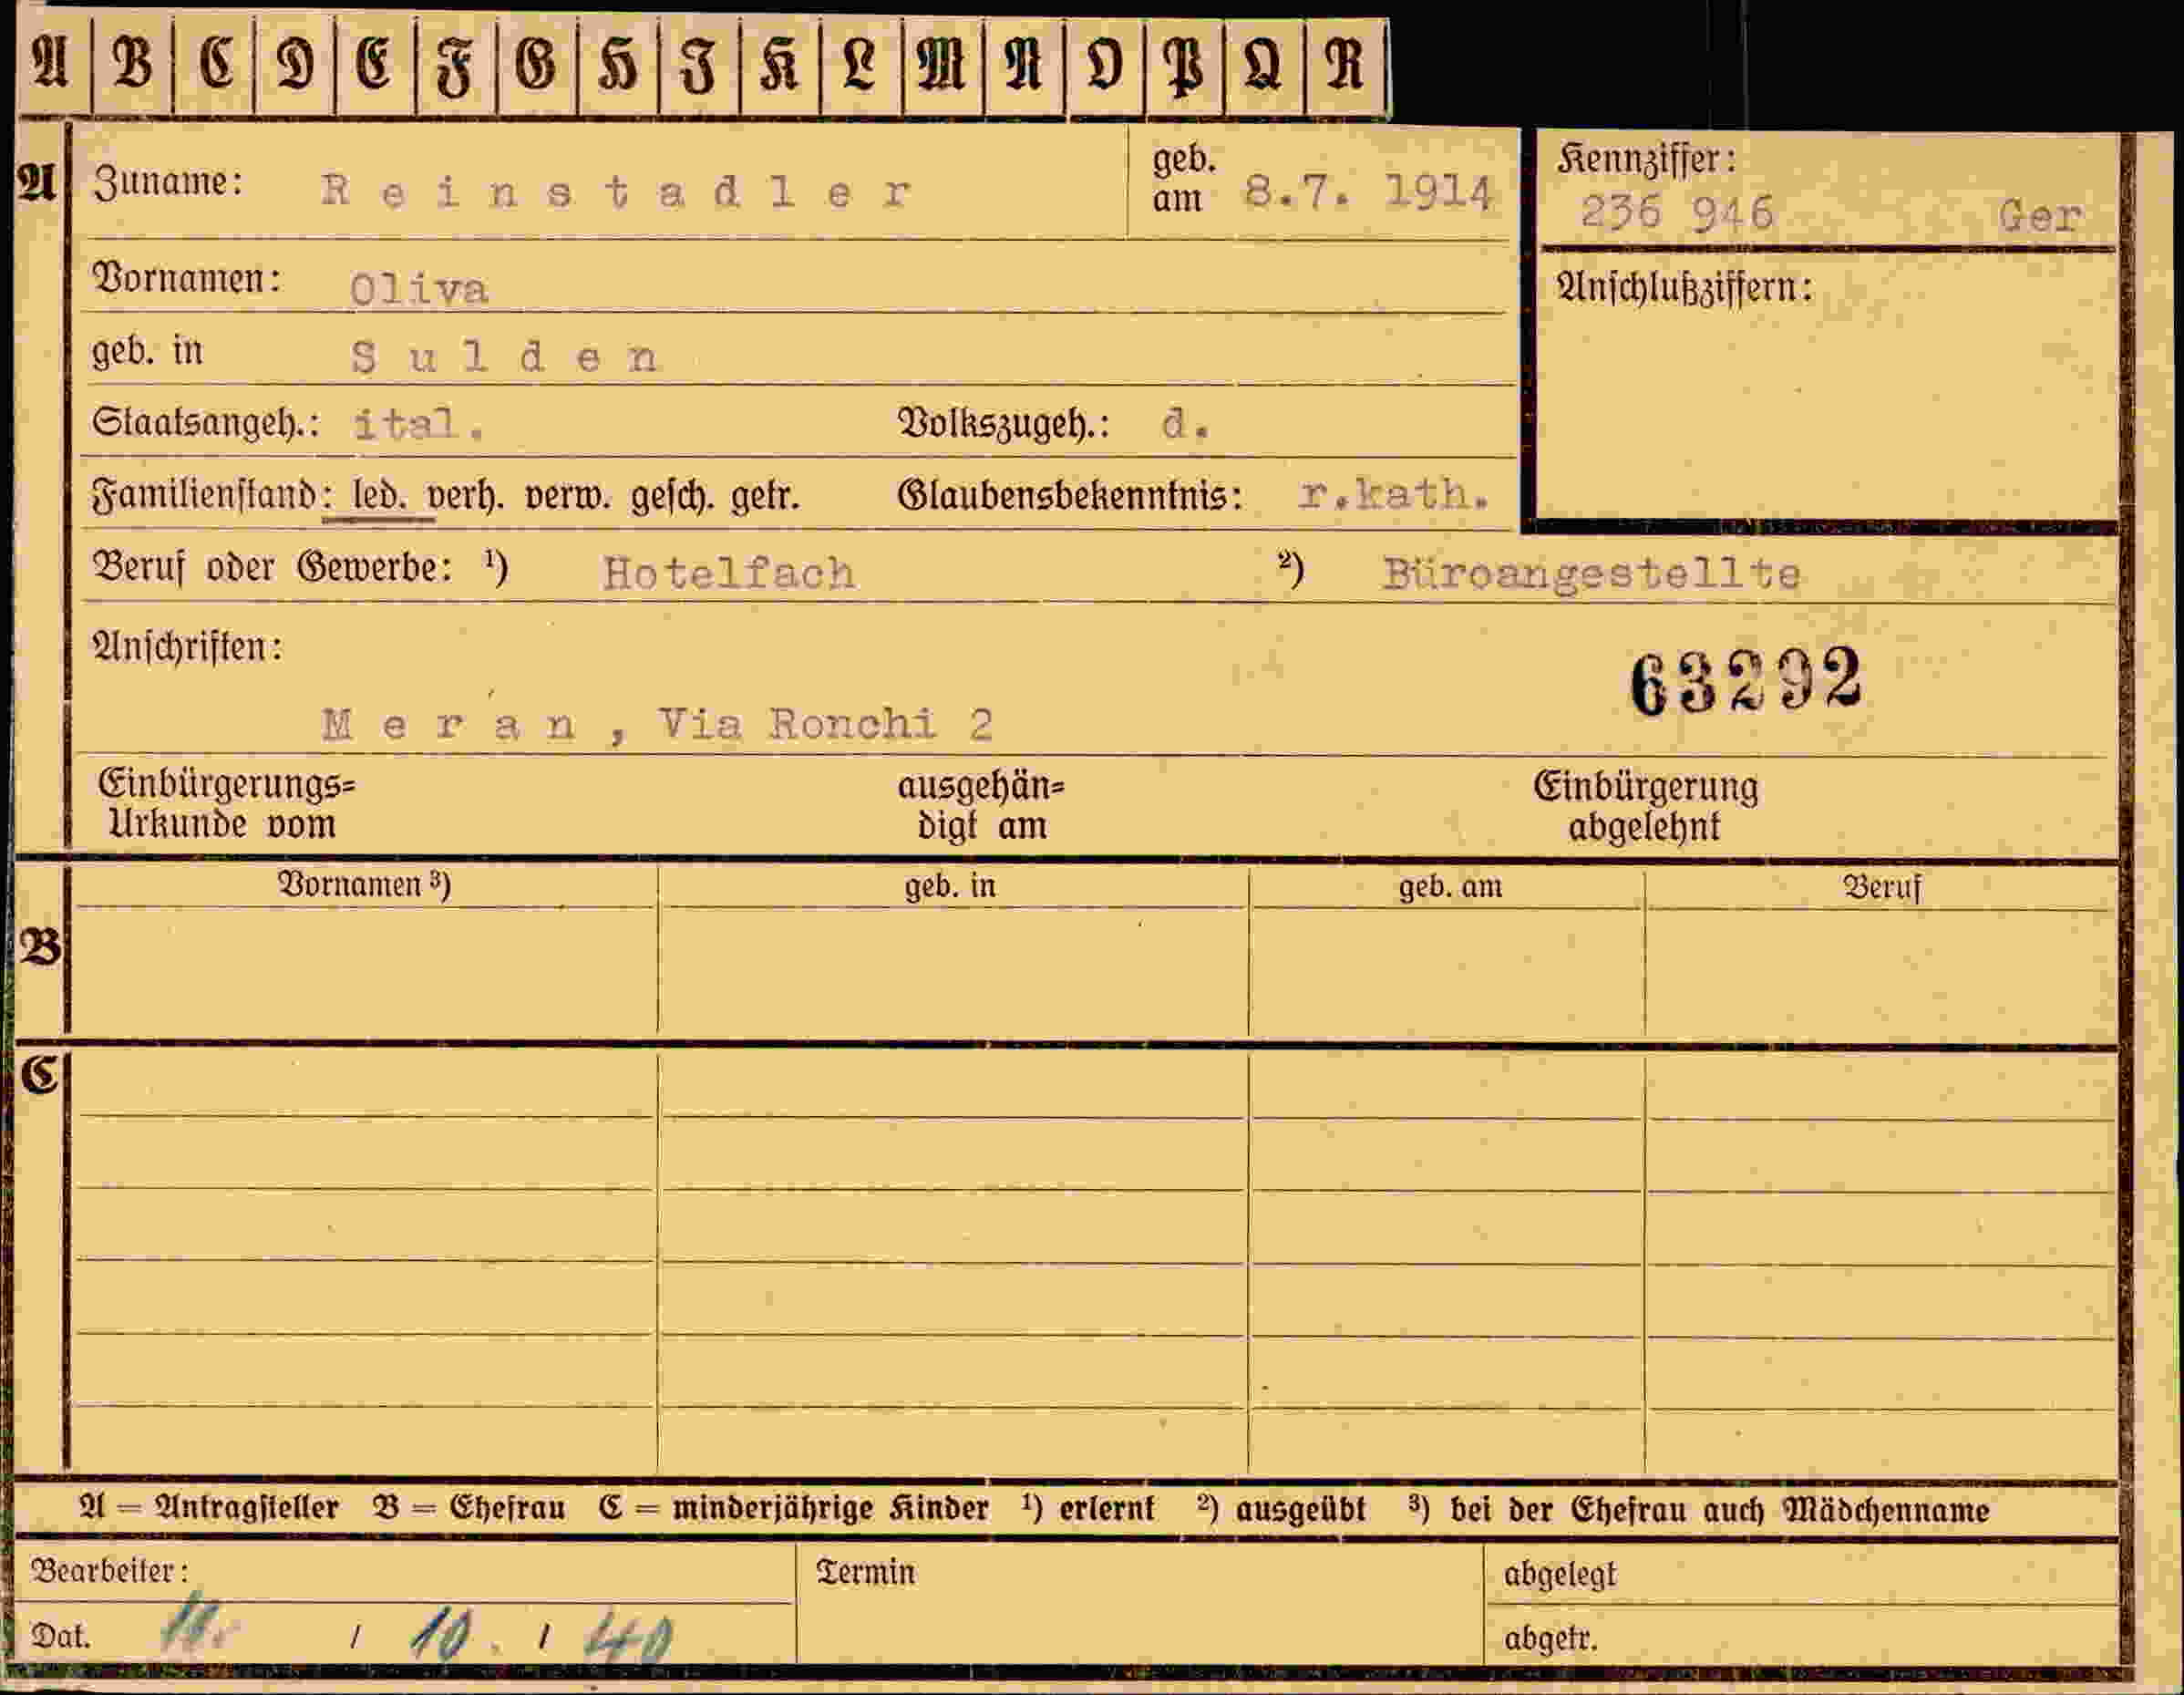 A B C D E F G H J K L M N O P Q R
A Zuname: Reinstadler geb. am 8.7. 1914
Kennziffer: 236 946 Ger
Vornamen: Oliva
Anschlußziffern:
geb. in Sulden
Staatsangeh.: ital. Volkszugeh.: d.
Familienstand: led. verh. verw. gesch. getr. Glaubensbekenntnis: r.kath.
Beruf oder Gewerbe: ¹) Hotelfach ²) Büroangestellte
Anschriften:
63292
Meran, Via Ronchi 2
Einbürgerungs= ausgehän= Einbürgerung
Urkunde vom digt am abgelehnt
Vornamen ³) geb. in geb. am Beruf
B
C
A = Antragsteller B = Ehefrau C = minderjährige Kinder ¹) erlernt ²) ausgeübt ³) bei der Ehefrau auch Mädchenname
Bearbeiter: Termin abgelegt
Dat. / 10. / 40 abgetr.